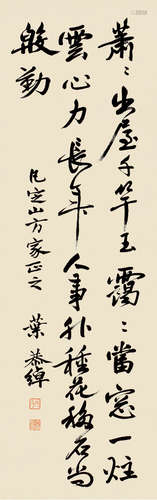 蕭〻出屋千竿玉靄〻當窗一炷
雲心力長年人事外種花移石尚
殷勤
定山方家正之
葉恭綽